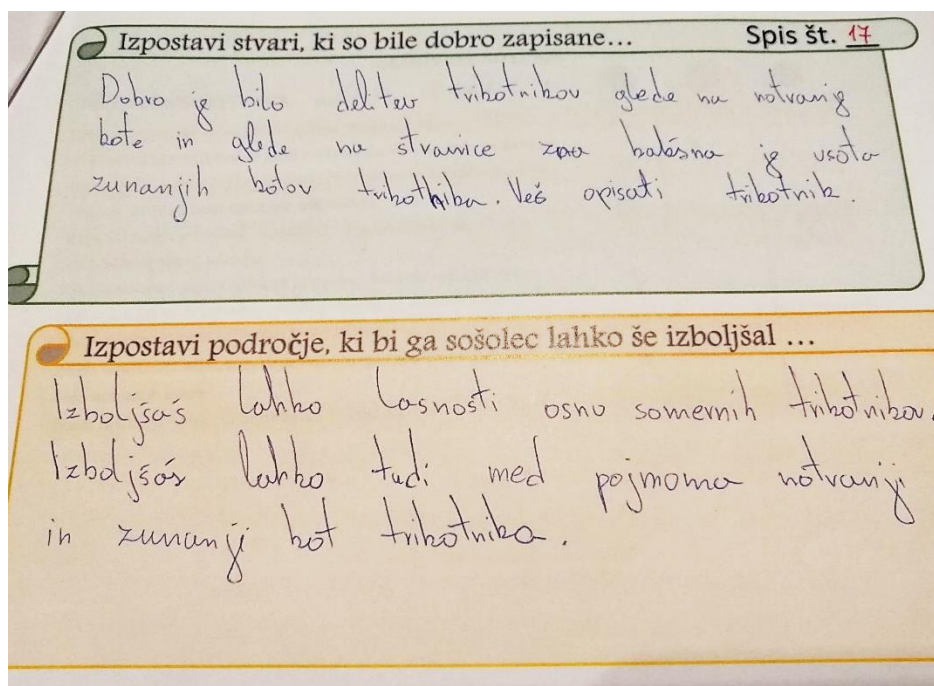 Izpostavi stvari, ki so bile dobro zapisane... Spis št. 17
Dobro je bilo delitev trikotnikov glede na notranje
kote in glede na stranice kakšna je vsota
zunanjih kotov trikotnika. Veš opisati trikotnik.
Izpostavi področje, ki bi ga sošolec lahko še izboljšal ...
Izboljšaš lahko lasnosti osno somernih trikotnikov.
Izboljšaš lahko tudi med pojmoma notranji
in zunanji kot trikotnika.